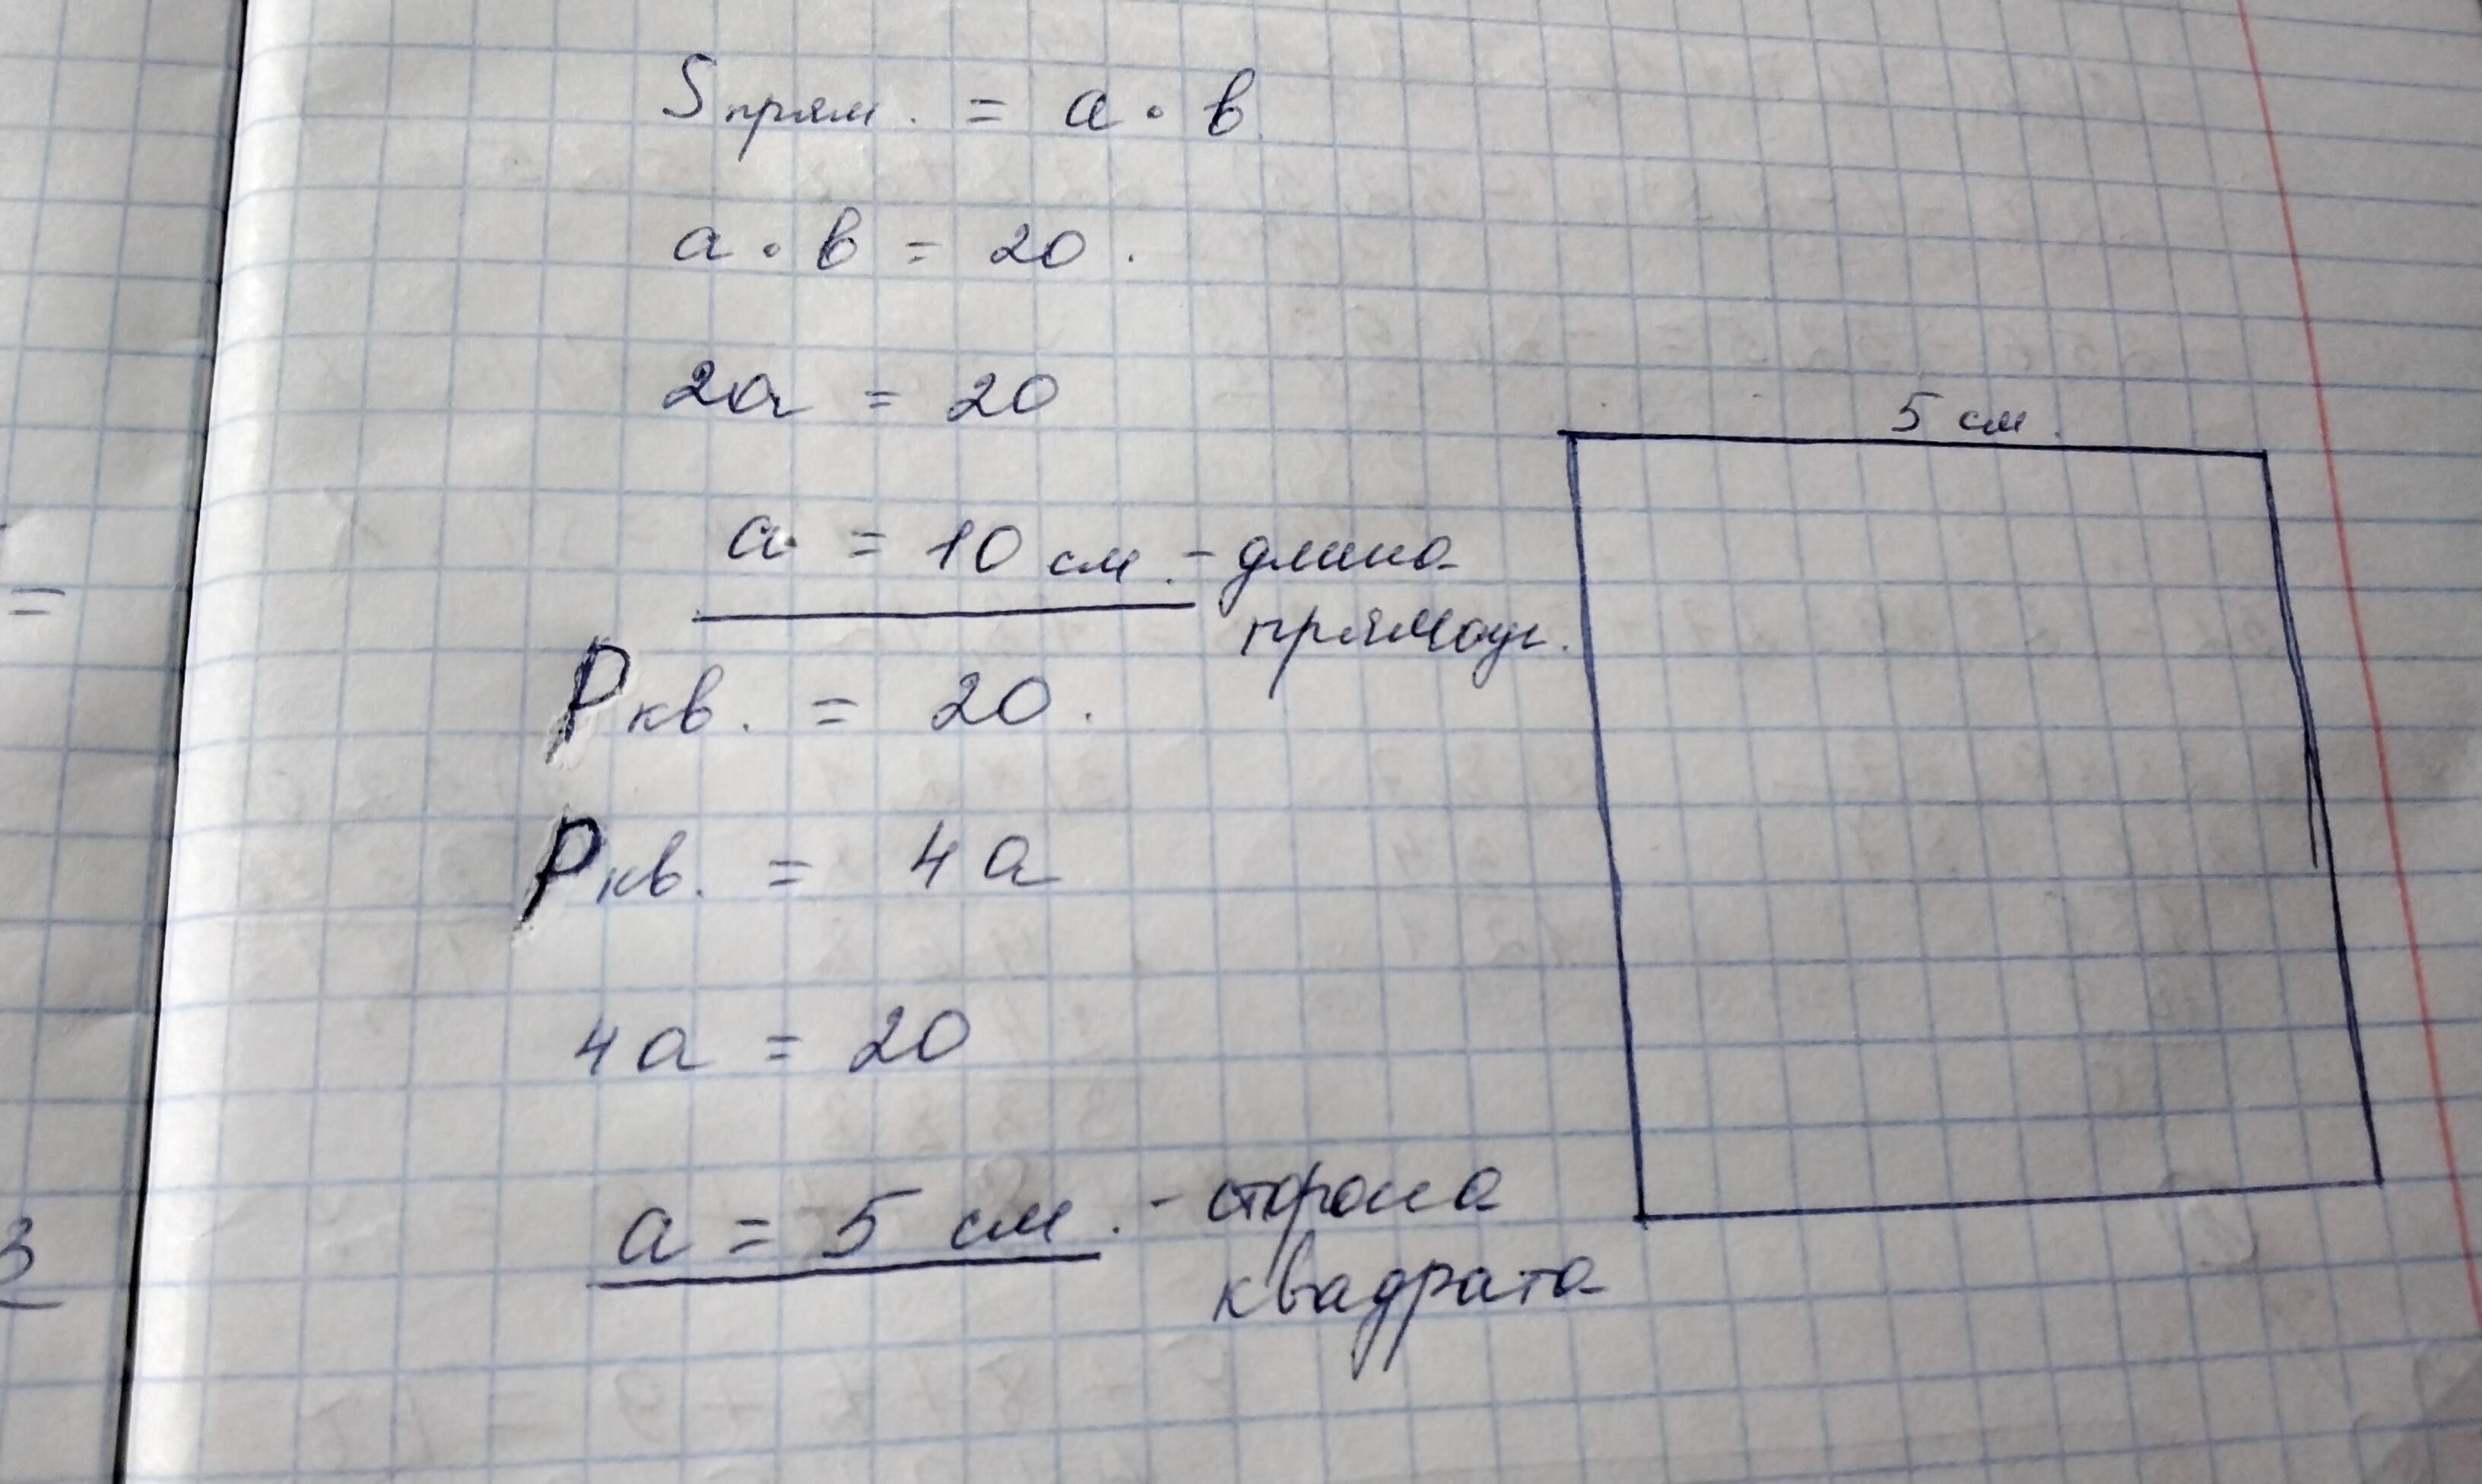 Sпрям. = а · в
а · в = 20.
2а = 20
а = 10 см. - длина
прямоуг.
Pкв. = 20.
Pкв. = 4а
4а = 20
а = 5 см. - сторона
квадрата
5 см.
=
3